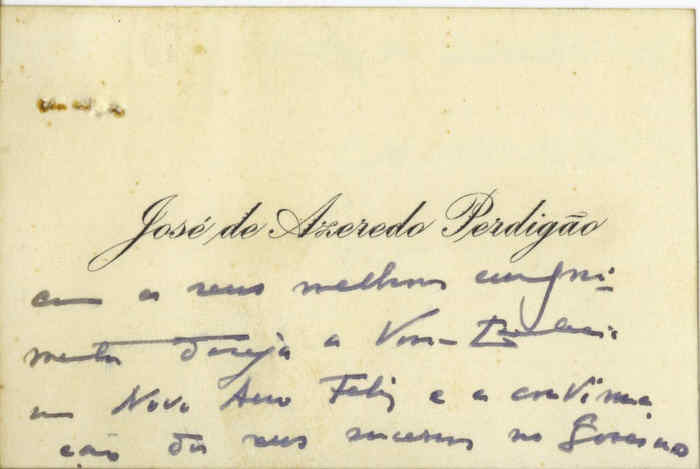 José de Azeredo Perdigão
com os seus melhores cumpri-
mentos deseja a Vossa Excelência
um Novo Ano Feliz e a continua
ção dos seus sucessos no Governo